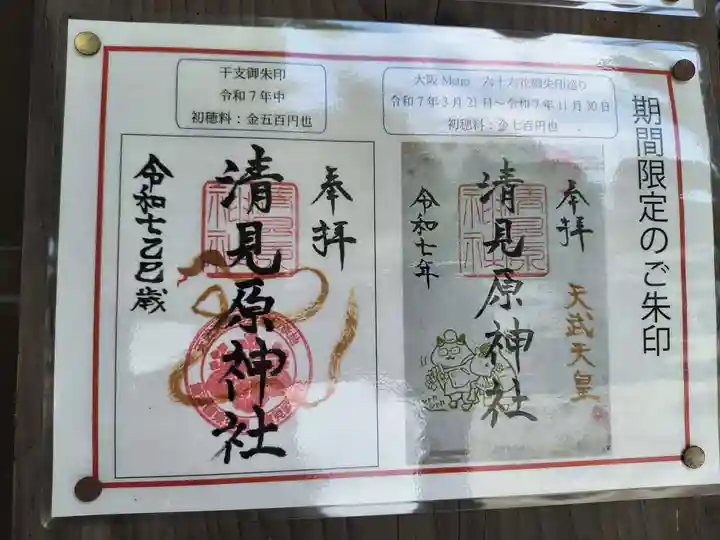 期間限定のご朱印
大阪 Metro 六十六花御朱印巡り
令和7年3月21日～令和7年11月30日
初穂料：金七百円也
奉拝
天武天皇
清見原神社
令和七年
干支御朱印
令和7年中
初穂料：金五百円也
奉拝
清見原神社
令和七乙巳歳